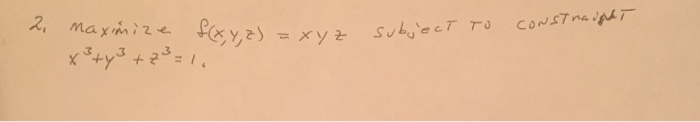 2. Maximize f(x,y,z) = xyz subject to constraint
x³+y³+z³=1.